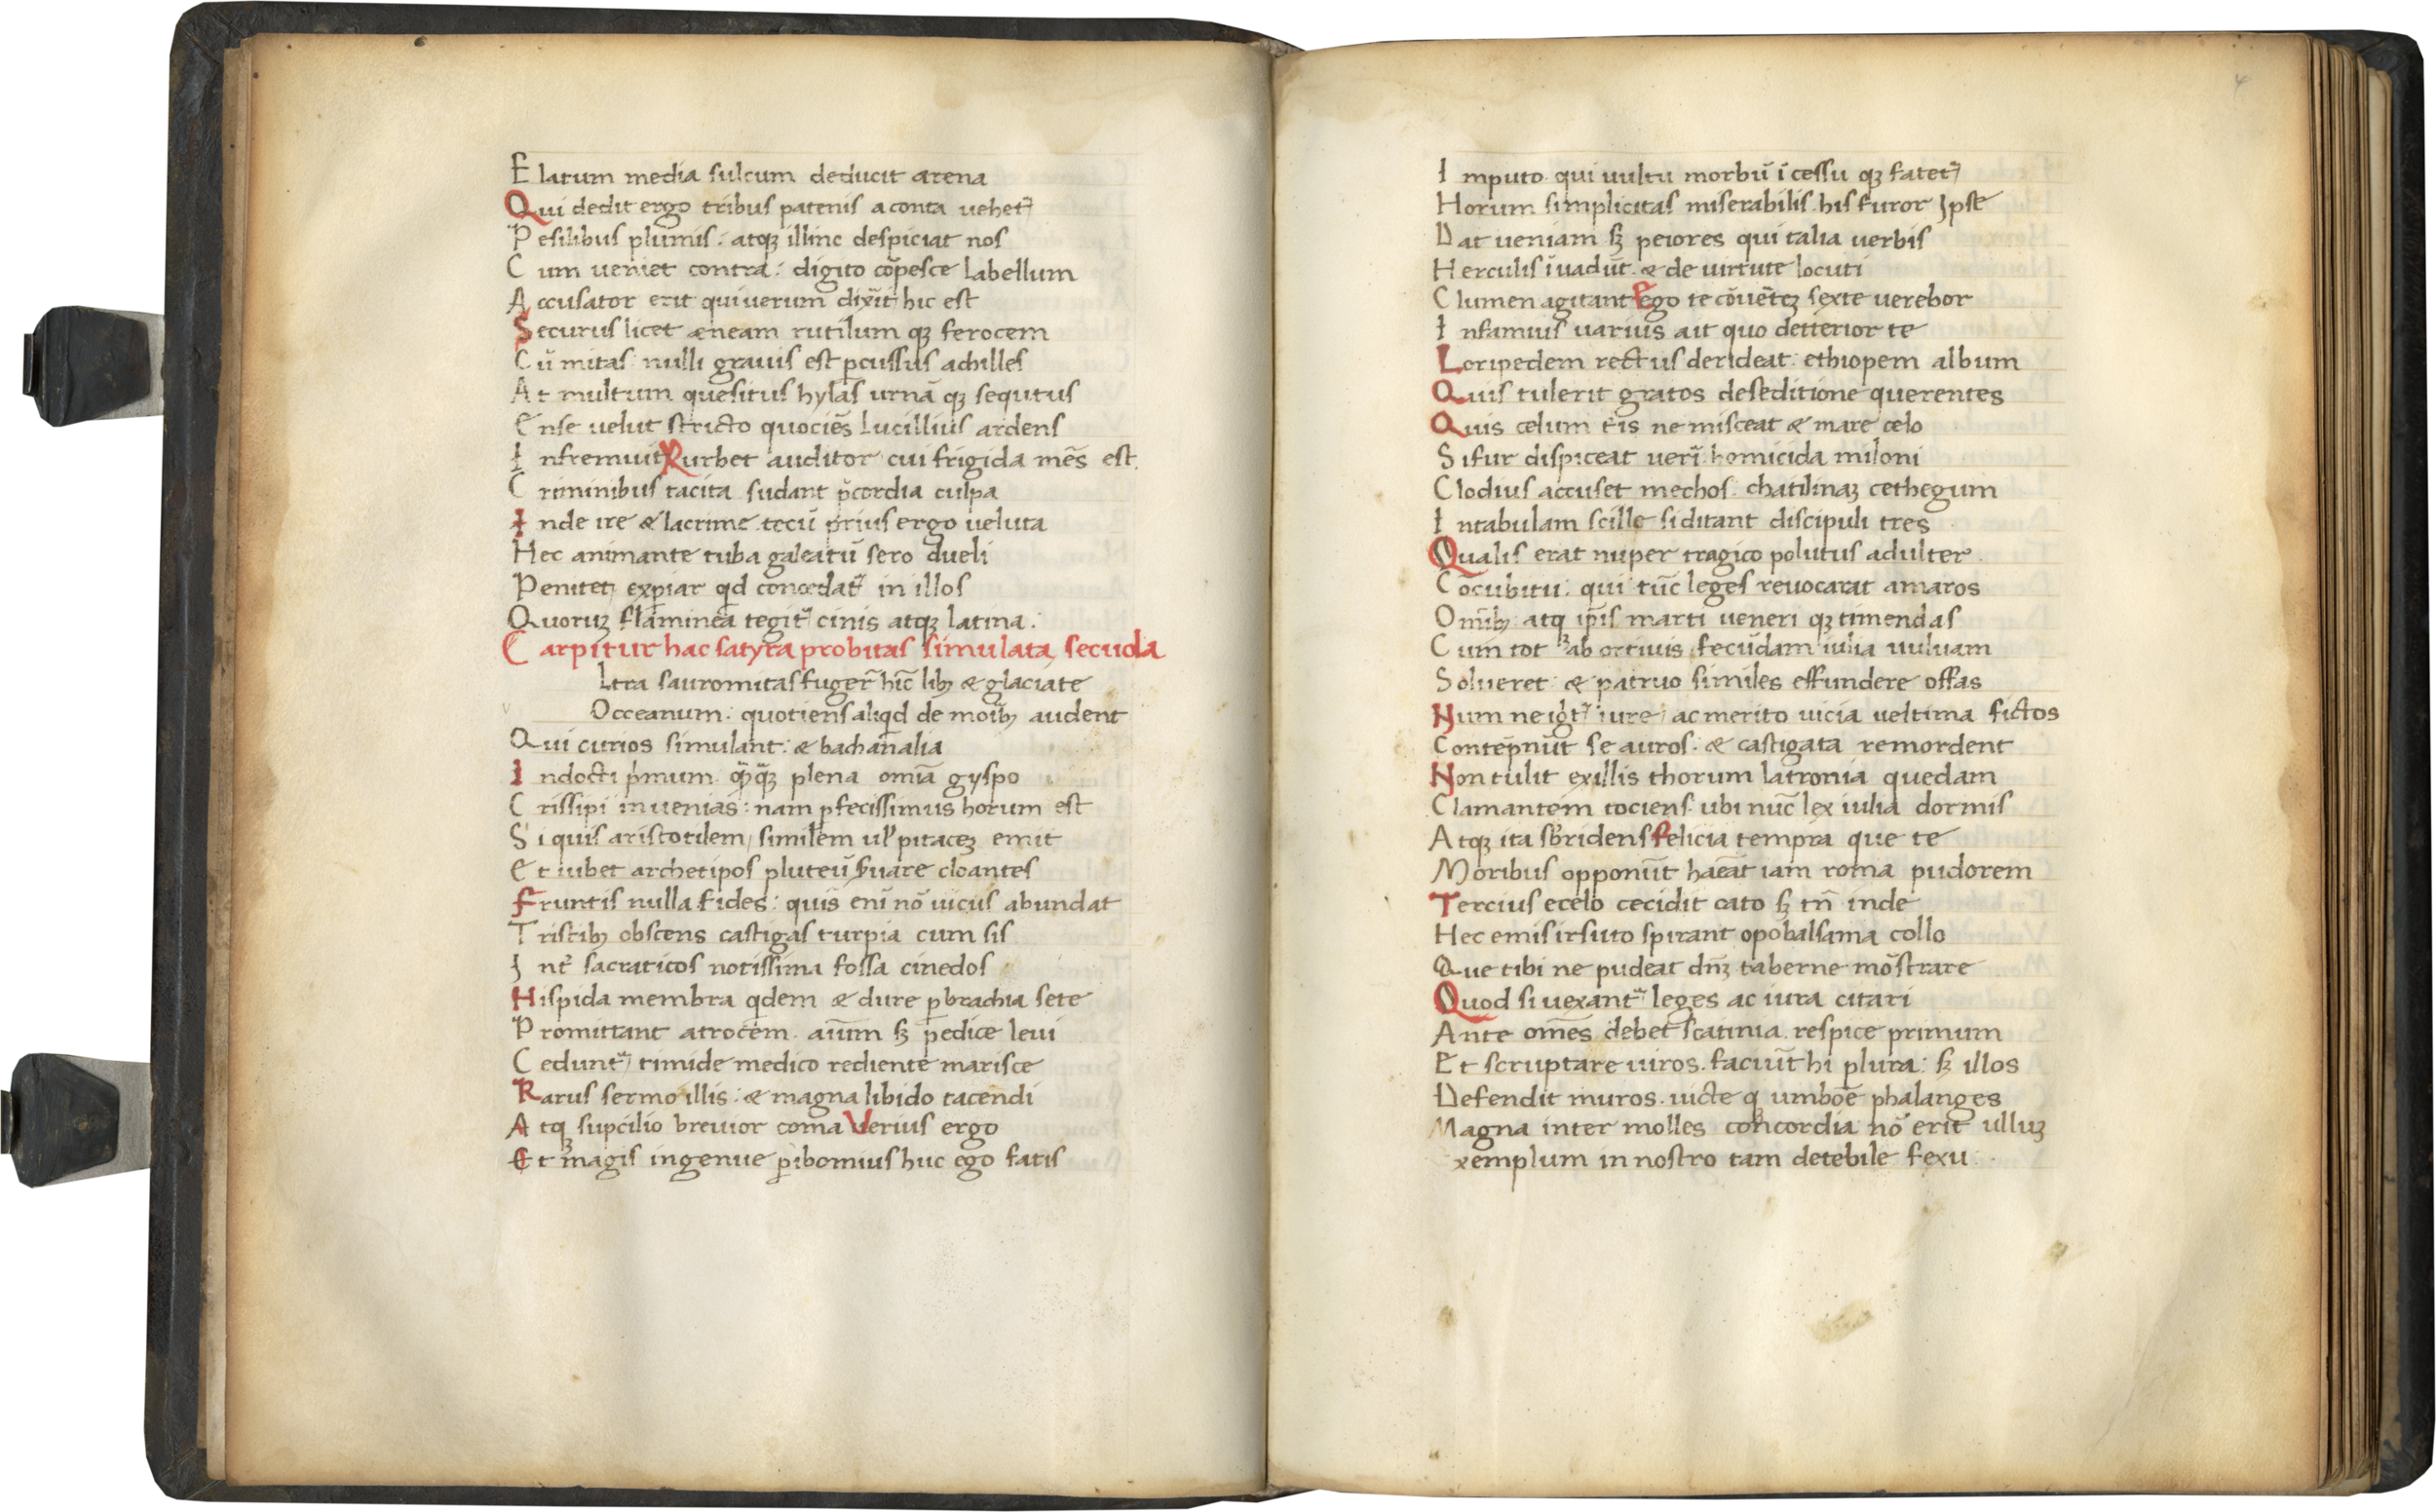 E latum media sulcum deducit arena
Qui dedit ergo tribus patenis aconta uehet᷑
P esilibus plumis : atqꝫ illinc despiciat nos
C um ueniet contra : digito cōpesce labellum
A ccusator erit qui uerum dixit hic est
S ecurus licet æneam rutilum qꝫ ferocem
C ū mitas nulli grauis est ꝑcussus achilles
A t multum quesitus hylas urnā qꝫ sequtus
E nse uelut stricto quociēs Lucillius ardens
I nfremuit Rurbet auditor cui frigida mēs est
C riminibus tacita sudant p̄cordia culpa
I nde ire & lacrime tecū prius ergo ueluta
Hec animante tuba galeatū sero dueli
Penitet expiar qd concedat᷑ in illos
Quoruꝫ flaminea tegit᷑ cinis atqꝫ latina .
C arpitur hac satyra probitas simulata secūda
Ltra sauromitas fuger̄ hīc libꝫ & glaciate
Occeanum : quotiens aliqd de moribꝫ audent
Qui curios simulant : & bachanalia
I ndocti pͥmum qͣꝫqꝫ plena omīa gyspo
C rissipi inuenias : nam ꝑfecissimus horum est
S i quis aristotilem similem ul̓ pitaceꝫ emit
E t iubet archetipos pluteū ẜuare cloantes
Fruntis nulla fides : quis eni nō uicus abundat
T ristibꝫ obscens castigas turpia cum sis
I nt̄ sacraticos notissima fossa cinedos
Hispida membra qdem & dure ꝑ brachia sete
P romittant atrocem . aīum sꝫ pedice leui
C edunt᷑ timide medico rediente marisce
Rarus sermo illis : & magna libido tacendi
A tqꝫ suꝑcilio breuior coma Verius ergo
Et magis ingenue ꝑibomius huc ego fatis
4
I mputo qui uultu morbū īcessu qꝫ fatet᷑
Horum simplicitas miserabilis his furor Ipse
Dat ueniam sꝫ peiores qui talia uerbis
Herculis īuadūt . & de uirtute locuti
Clumen agitant Ego te cōuētēꝫ sexte uerebor
I nfamius uarius ait quo detterior te
Loripedem rectus derideat : ethiopem album
Quis tulerit gratos de seditione querentes
Quis celum t̄is ne misceat & mare celo
Si fur dispiceat ueri homicida miloni
Clodius accuset mechos : chatilinaꝫ cethegum
I ntabulam scille si ditant discipuli tres
Qualis erat nuper tragico polutus adulter
Cōcubitu : qui tūc leges reuocarat amaros
Omībꝫ atqꝫ ip̄is marti ueneri qꝫ timendas
C um tot ab ortiuis fecūdam iulia uuluam
Solueret : & patruo similes effundere offas
Num ne igit᷑ iure ac merito uicia ueltima fictos
Contēpnūt se auros : & castigata remordent
Non tulit ex illis thorum latronia quedam
Clamantem tociens ubi nūc lex iulia dormis
A tqꝫ ita sb̓ridens Felicia tempra que te
Moribus opponūt habeāt iam roma pudorem
Tercius ecelo cecidit cato sꝫ tn̄ inde
Hec emis irsuto spirant opobalsama collo
Que tibi ne pudeat dn̄ꝫ taberne mōstrare
Quod si uexant᷑ leges ac iura citari
Ante omēs debet scatinia . respice primum
E t scruptare uiros . faciūt hi plura : sꝫ illos
Defendit muros . uicte qꝫ umboē phalanges
Magna inter molles concordia nō erit ulluꝫ
xemplum in nostro tam detebile fexu